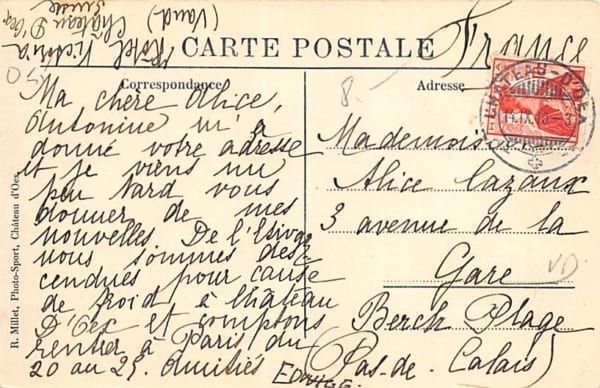 Hôtel Victoria
Château D'Oex
Suisse
(Vaud)
CARTE POSTALE
France
Correspondance
Adresse
CHÂTEAU-D'OEX
Ma chère Alice,
Antonine m'a
donné votre adresse
et je viens un
peu tard vous
donner de mes
nouvelles. De l'Etivaz
nous sommes des-
cendues pour cause
de froid à Château
D'Oex et comptons
rentrer à Paris du
20 au 25. Amitiés
Mademoiselle
Alice Cazaux
3 avenue de la
Gare
Berck Plage
(Pas-de-Calais)
R. Millet, Photo-Sport, Château d'Oex